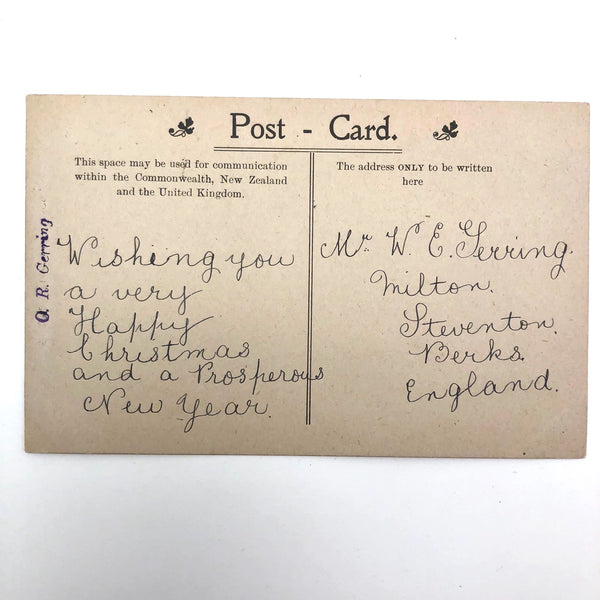 Post - Card.
This space may be used for communication
within the Commonwealth, New Zealand
and the United Kingdom.
The address ONLY to be written
here
O. R. Gerring
Wishing you
a very
Happy
Christmas
and a Prosperous
New Year.
Mr. W. E. Gerring.
Milton.
Steventon.
Berks.
England.